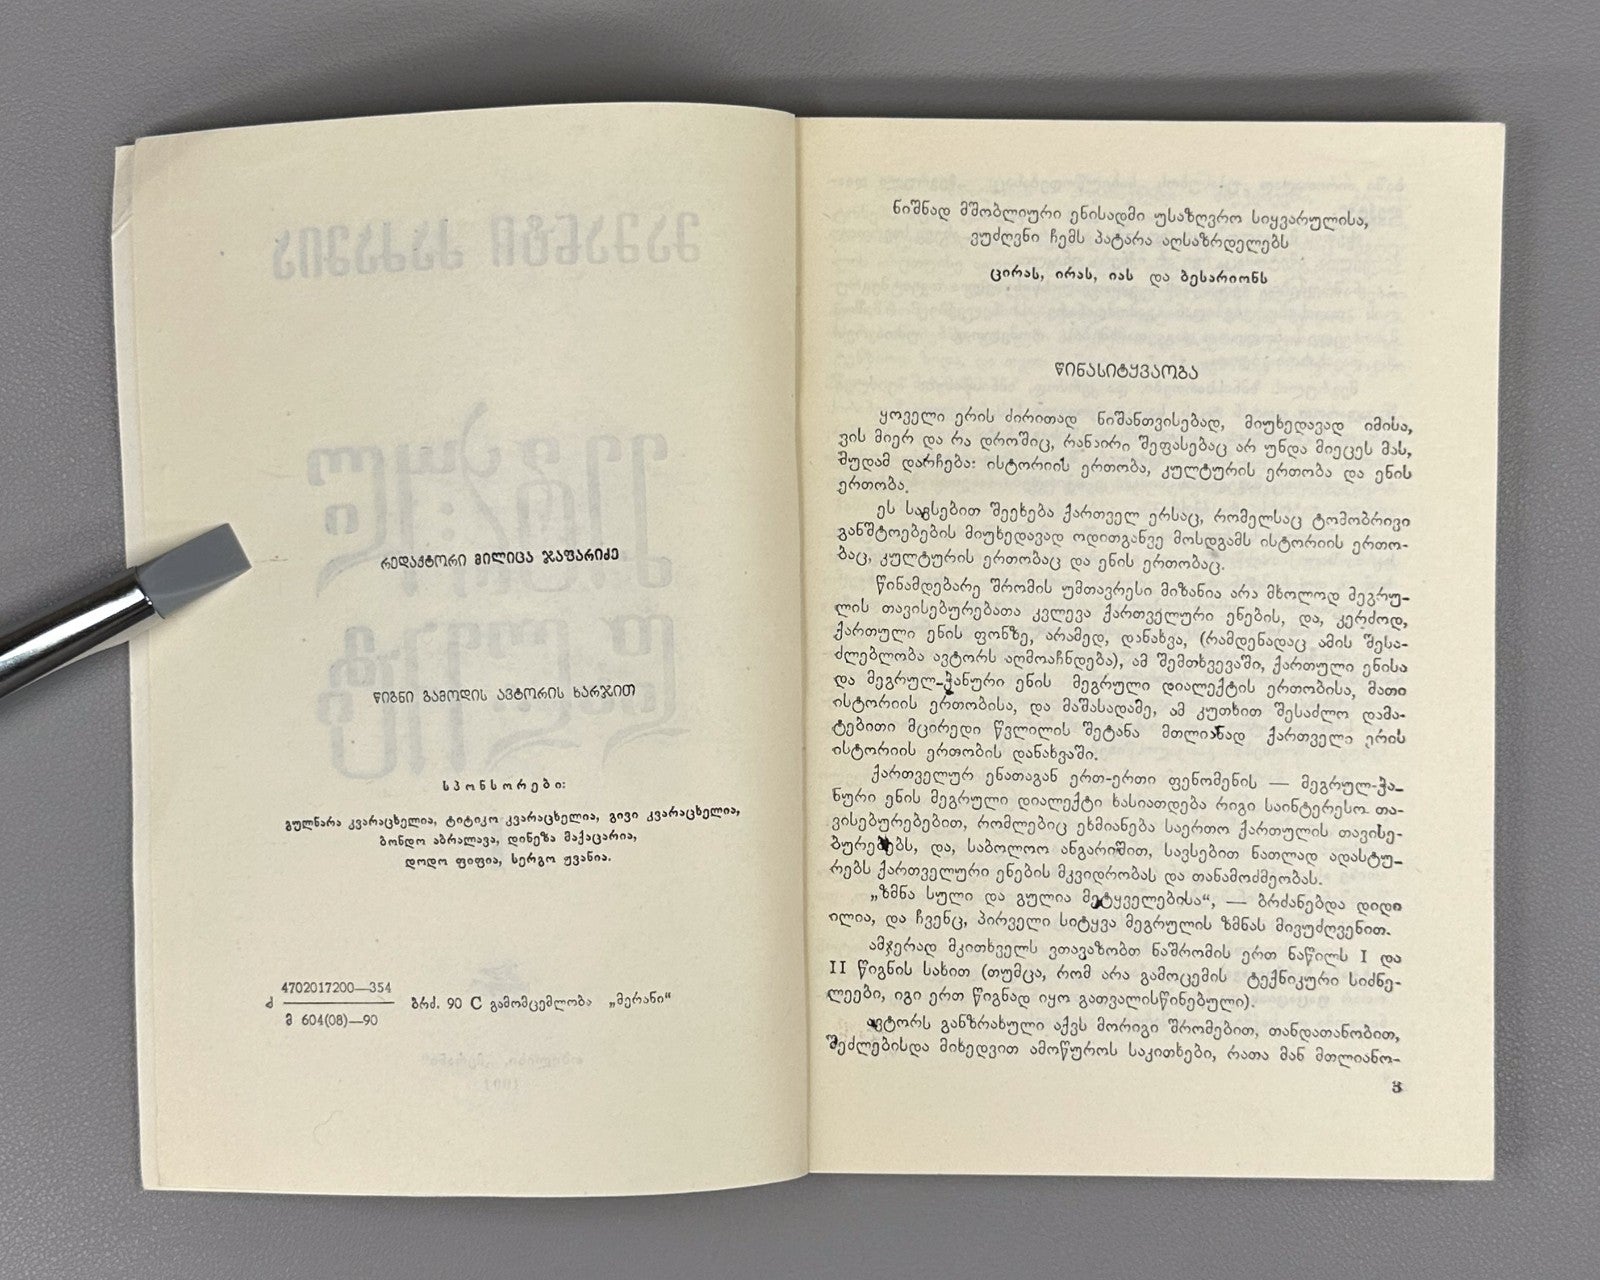 რედაქტორი მილიცა ჯაფარიძე
წიგნი გამოდის ავტორის ხარჯით
სპონსორები:
გულნარა კვარაცხელია, ტიტიკო კვარაცხელია, გივი კვარაცხელია,
ბონდო აბრალავა, დინეზა მაქაცარია,
დოდო ფიფია, სერგო ჟვანია.
4702017200—354
მ 604(08)—90
ბრძ. 90 С გამომცემლობა „მერანი“
ნიშნად მშობლიური ენისადმი უსაზღვრო სიყვარულისა,
ვუძღვნი ჩემს პატარა აღსაზრდელებს
ცირას, ირას, იას და ბესარიონს
წინასიტყვაობა
ყოველი ერის ძირითად ნიშანთვისებად, მიუხედავად იმისა,
ვის მიერ და რა დროშიც, რანაირი შეფასებაც არ უნდა მიეცეს მას,
მუდამ დარჩება: ისტორიის ერთობა, კულტურის ერთობა და ენის
ერთობა.
ეს სავსებით შეეხება ქართველ ერსაც, რომელსაც ტომობრივი
განშტოებების მიუხედავად ოდითგანვე მოსდგამს ისტორიის ერთო-
ბაც, კულტურის ერთობაც და ენის ერთობაც.
წინამდებარე შრომის უმთავრესი მიზანია არა მხოლოდ მეგრუ-
ლის თავისებურებათა კვლევა ქართველური ენების, და, კერძოდ,
ქართული ენის ფონზე, არამედ, დანახვა, (რამდენადაც ამის შესა-
ძლებლობა ავტორს აღმოაჩნდება), ამ შემთხვევაში, ქართული ენისა
და მეგრულ-ჭანური ენის მეგრული დიალექტის ერთობისა, მათი
ისტორიის ერთობისა, და მაშასადამე, ამ კუთხით შესაძლო დამა-
ტებითი მცირედი წვლილის შეტანა მთლიანად ქართველი ერის
ისტორიის ერთობის დანახვაში.
ქართველურ ენათაგან ერთ-ერთი ფენომენის — მეგრულ-ჭა-
ნური ენის მეგრული დიალექტი ხასიათდება რიგი საინტერესო თა-
ვისებურებებით, რომლებიც ეხმიანება საერთო ქართულის თავისე-
ბურებებს, და, საბოლოო ანგარიშით, სავსებით ნათლად ადასტუ-
რებს ქართველური ენების მკვიდრობას და თანამოძმეობას.
„ზმნა სული და გულია მეტყველებისა“, — ბრძანებდა დიდი
ილია, და ჩვენც, პირველი სიტყვა მეგრულის ზმნას მივუძღვენით.
ამჯერად მკითხველს ვთავაზობთ ნაშრომის ერთ ნაწილს I და
II წიგნის სახით (თუმცა, რომ არა გამოცემის ტექნიკური სიძნე-
ლეები, იგი ერთ წიგნად იყო გათვალისწინებული).
ავტორს განზრახული აქვს მორიგი შრომებით, თანდათანობით,
შეძლებისდა მიხედვით ამოწუროს საკითხები, რათა მან მთლიანო-
3